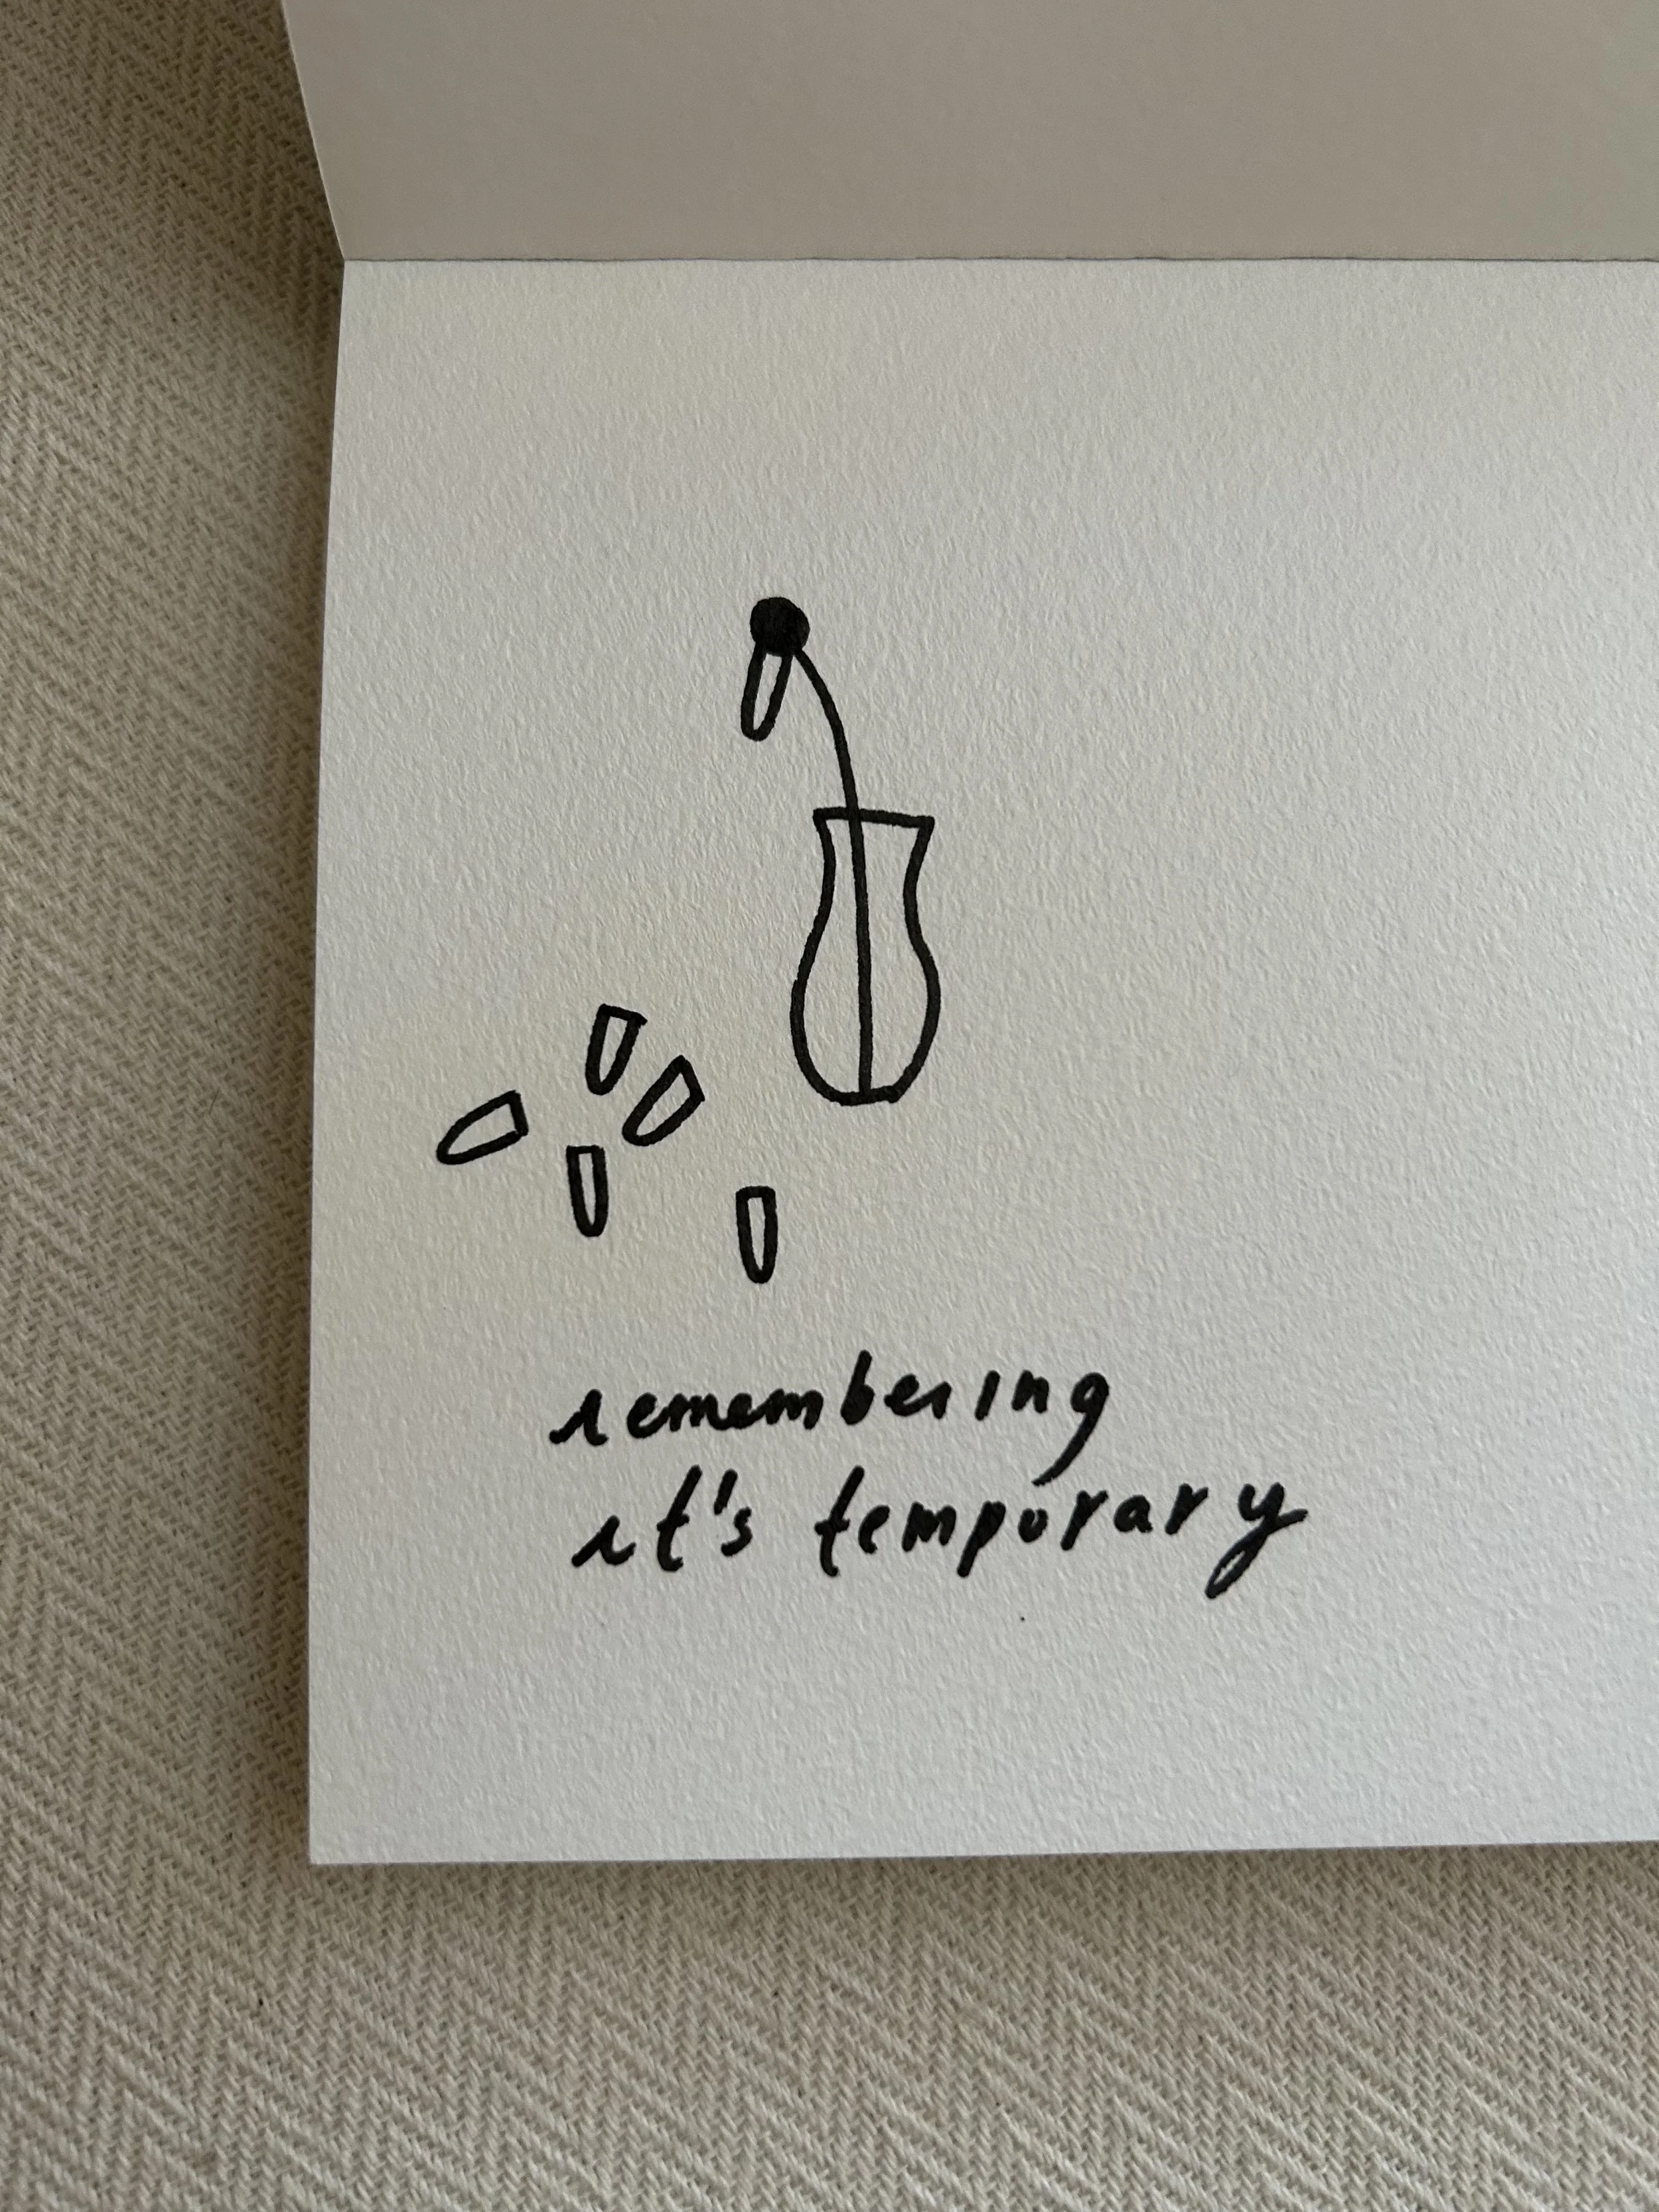 remembering
it's temporary